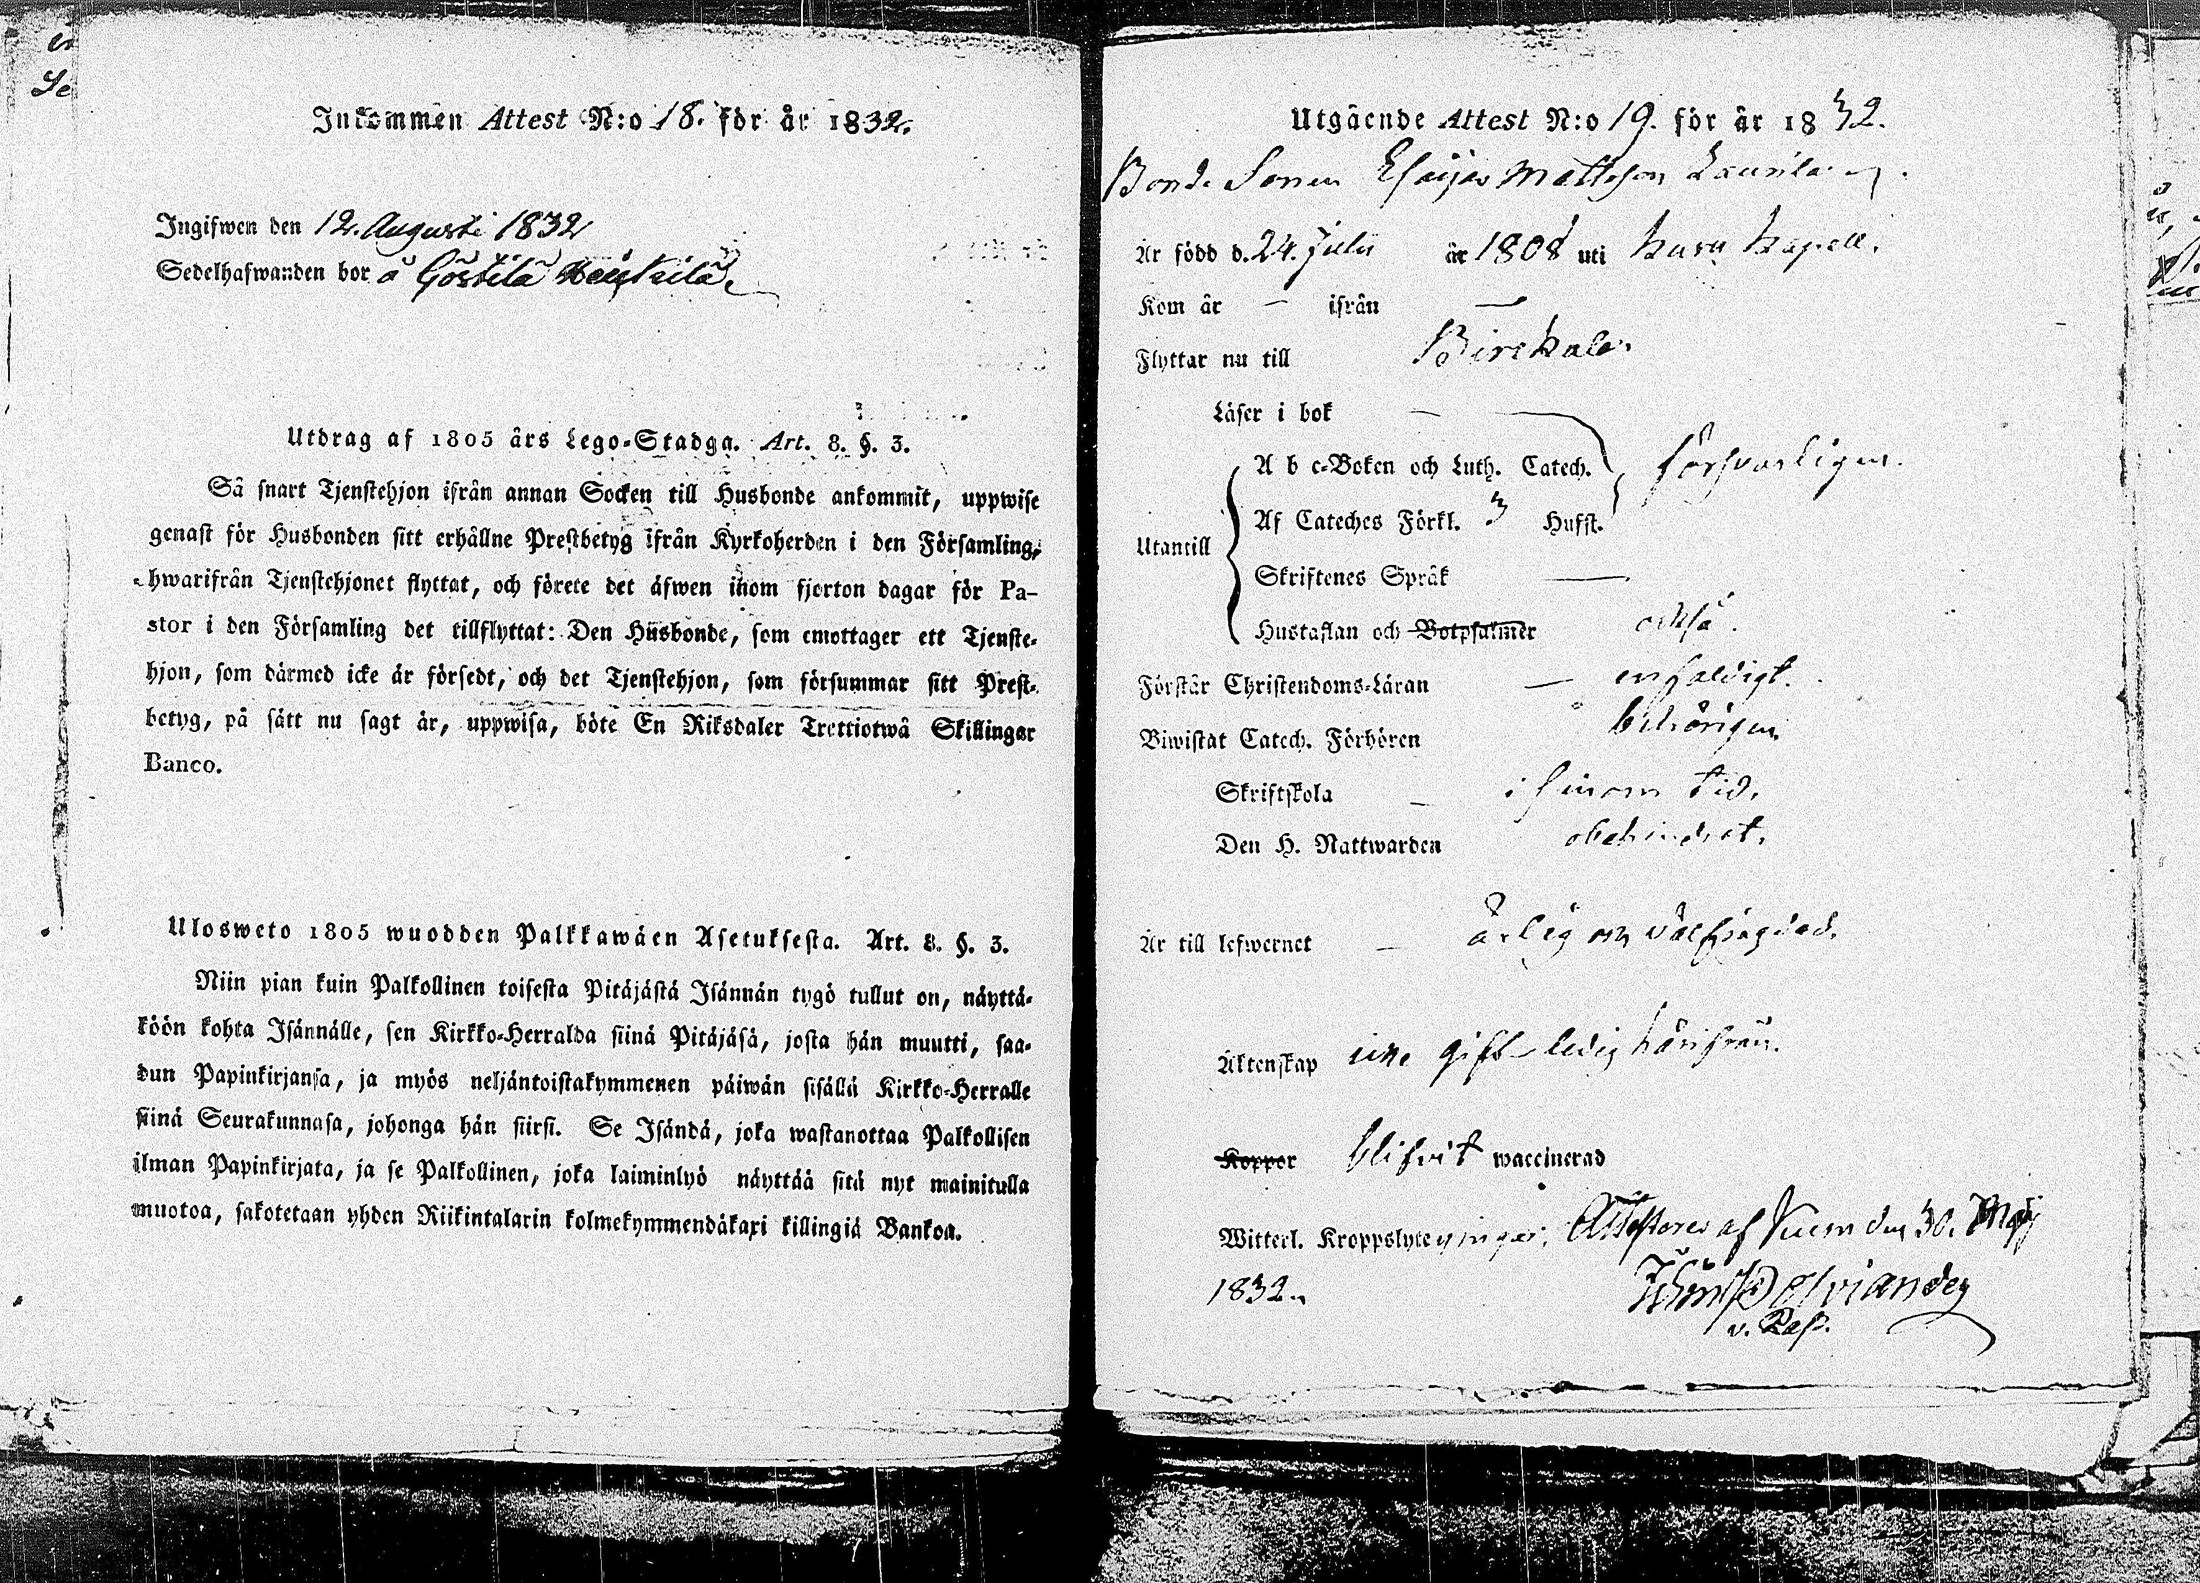 Inkommen Attest N:o 18. för år 1832.
Ingifwen den 12. Augusti 1832
Sedelhafwanden bor å Göstilä
Utdrag af 1805 års Lego-Stadga. Art. 8. §. 3.
Så snart Tjenstehjon ifrån annan Socken till Husbonde ankommit, uppwise
genast för Husbonden sitt erhållne Prestbetyg ifrån Kyrkoherden i den Församling,
hwarifrån Tjenstehjonet flyttat, och förete det äfwen inom fjorton dagar för Pa-
stor i den Församling det tillflyttat: Den Husbonde, som emottager ett Tjenste-
hjon, som därmed icke är försedt, och det Tjenstehjon, som försummar sitt Prest-
betyg, på sätt nu sagt är, uppwisa, böte En Riksdaler Trettiotwå Skillingar
Banco.
Ulosweto 1805 wuodden Palkkawäen Asetuksesta. Art. 8. §. 3.
Niin pian kuin Palkollinen toisesta Pitäjästä Isännän tygö tullut on, näyttä-
köön kohta Isännälle, sen Kirkko-Herralda siinä Pitäjäsä, josta hän muutti, saa-
dun Papinkirjansa, ja myös neljäntoistakymmenen päiwän sisällä Kirkko-Herralle
siinä Seurakunnasa, johonga hän siirsi. Se Isändä, joka wastanottaa Palkollisen
ilman Papinkirjata, ja se Palkollinen, joka laiminlyö näyttää sitä nyt mainitulla
muotoa, sakotetaan yhden Riikintalarin kolmekymmendäkaxi killingiä Bankoa.
Utgående Attest N:o 19. för år 1832.
Bonde Sonen Esaijas Mattsson Laurila
Är född d. 24. Julii år 1808 uti Kuru Kapell.
Kom år — ifrån —
Flyttar nu till Birckala
Läser i bok —
A b c-Boken och Luth. Catech. försvarligen.
Af Cateches Förkl. 3 Hufst.
Utantill
Skriftenes Språk —
Hustaflan och Botpsalmer också.
Förstår Christendoms-Läran — enfaldigt.
Biwistat Catech. Förhören behörigen
Skriftskola — i sinom tid.
Den H. Nattwarden obehindrat.
Är till lefwernet — ärlig och välfrägdad.
Äktenskap icke gift ledig härifrån.
Koppor blifvit waccinerad
Witterl. Kroppslyte Attesteras af Kuru den 30. Maj
1832.